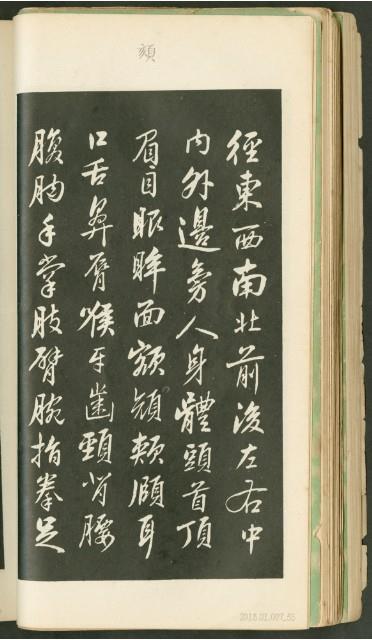 頦
徑東西南北前後左右中
內外邊旁人身體頭首頂
眉目眼眸面額頰頤耳
口舌鼻脣喉牙齒頸背腰
腹胸手掌肢臂腕指拳足
2018.01.007_55